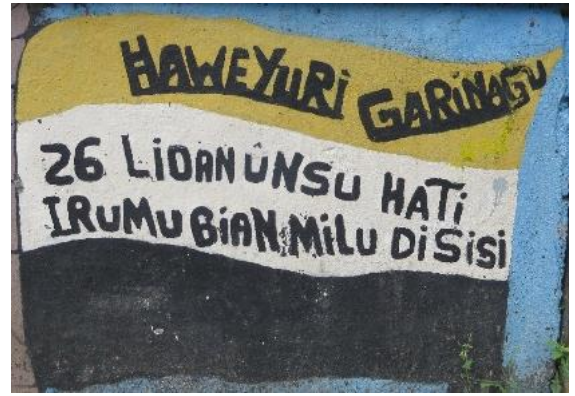 HAWEYURI GARINAGU
26 LIDAN UNSU HATI
IRUMU BIAN MILU DISISI